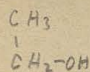 CH3
|
CH2-OH